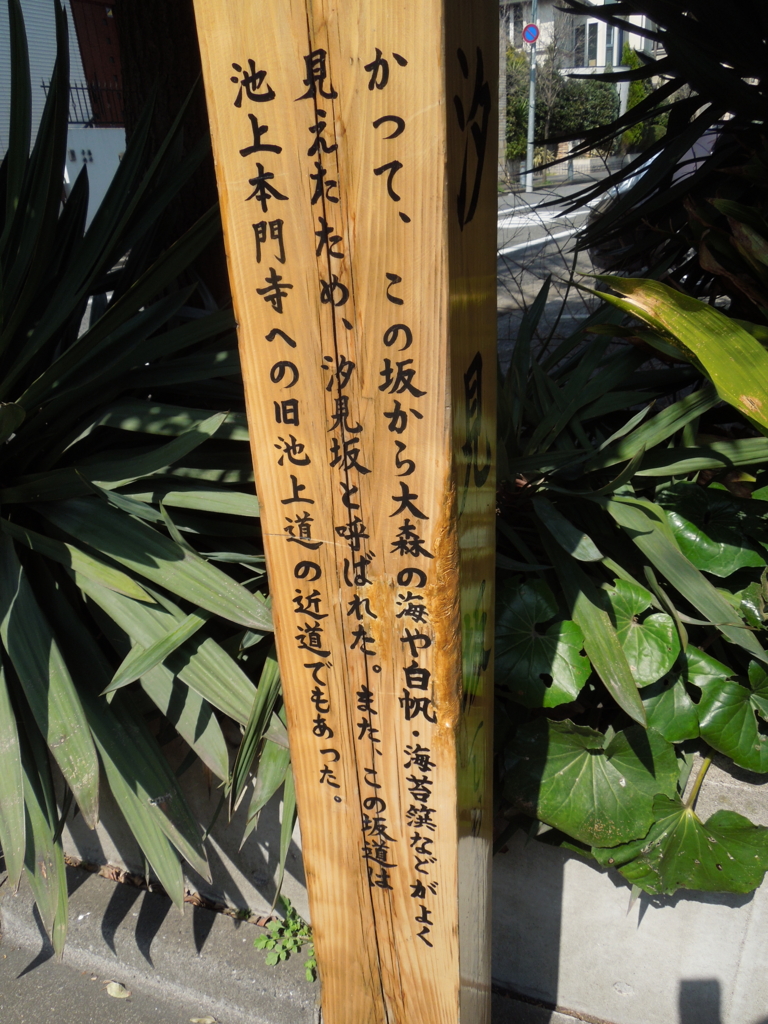 汐見
かつて、この坂から大森の海や白帆・海苔篊などがよく
見えたため、汐見坂と呼ばれた。また、この坂道は
池上本門寺への旧池上道の近道でもあった。